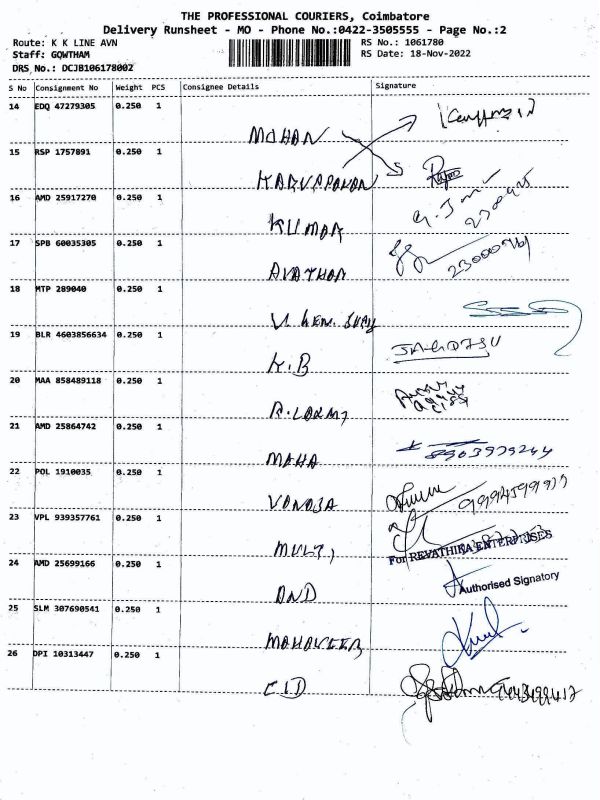 THE PROFESSIONAL COURIERS, Coimbatore
Delivery Runsheet - MO - Phone No.:0422-3505555 - Page No.:2
Route: K K LINE AVN
RS No.: 1061780
Staff: GOWTHAM
RS Date: 18-Nov-2022
DRS No.: DCJB106178002
S No Consignment No Weight PCS Consignee Details Signature
14 EDQ 47279305 0.250 1
MOHAN
15 RSP 1757891 0.250 1
16 AMD 25917270 0.250 1
KUMAR
17 SPB 60035305 0.250 1
18 MTP 289040 0.250 1
19 BLR 4603856634 0.250 1
K.B
20 MAA 858489118 0.250 1
21 AMD 25864742 0.250 1
8903979244
MAHA
22 POL 1910035 0.250 1
VANOJA
23 VPL 939357761 0.250 1
MULTI
For REVATHIKA ENTERPRISES
24 AMD 25699166 0.250 1
Authorised Signatory
AND
25 SLM 307690541 0.250 1
MAHAVEER
26 DPI 10313447 0.250 1
CID